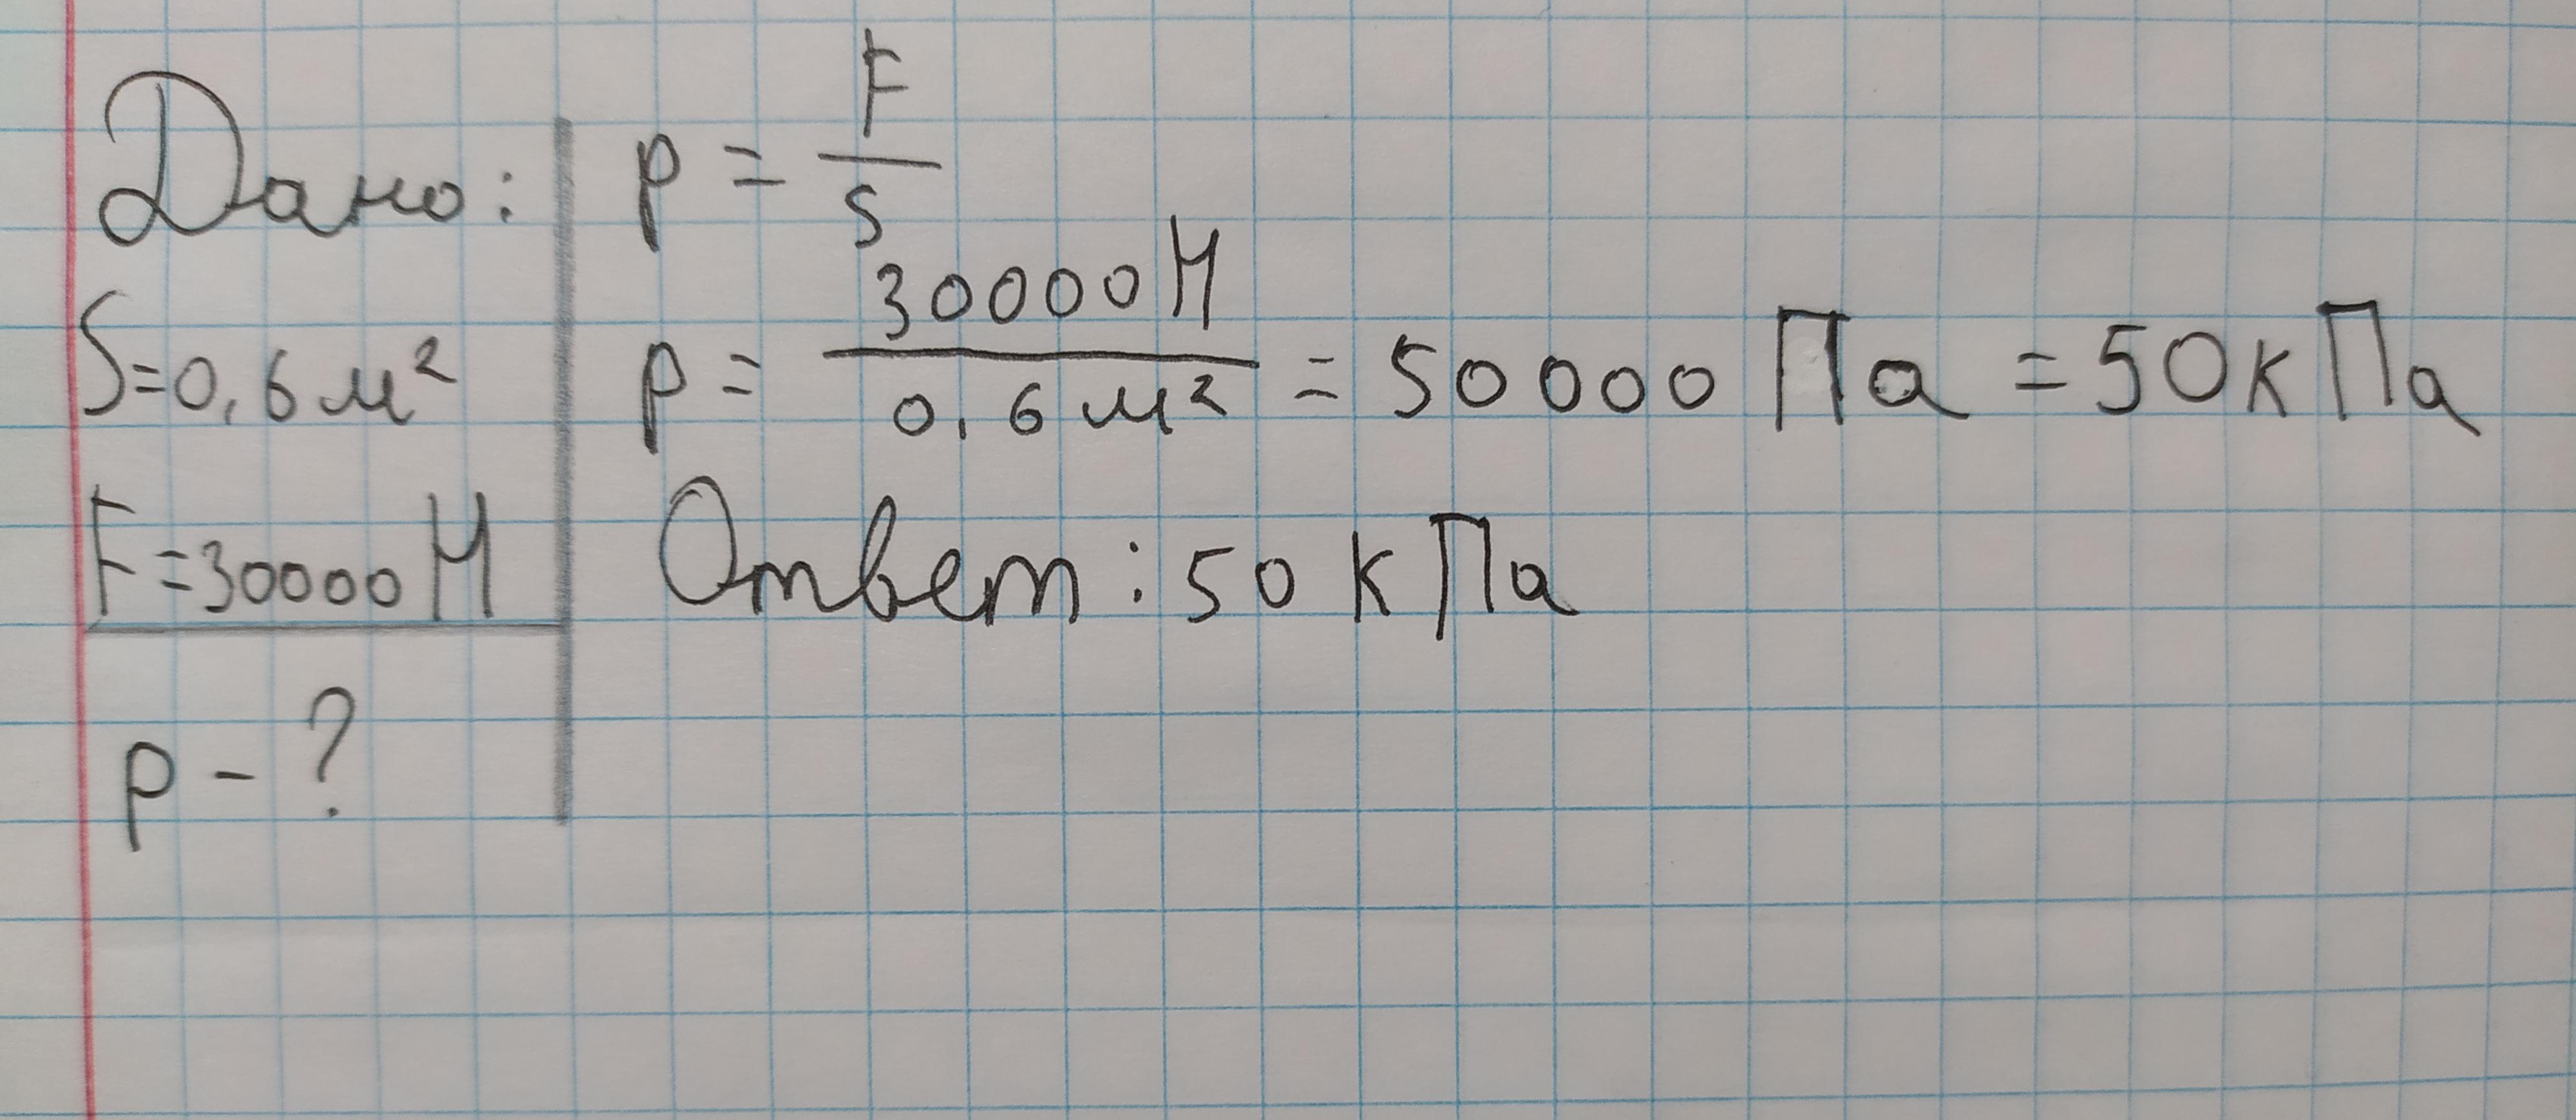 Дано:
S=0,6 м²
F=30000 Н
p - ?
p = F/S
p = 30000 Н / 0,6 м² = 50000 Па = 50 кПа
Ответ: 50 кПа